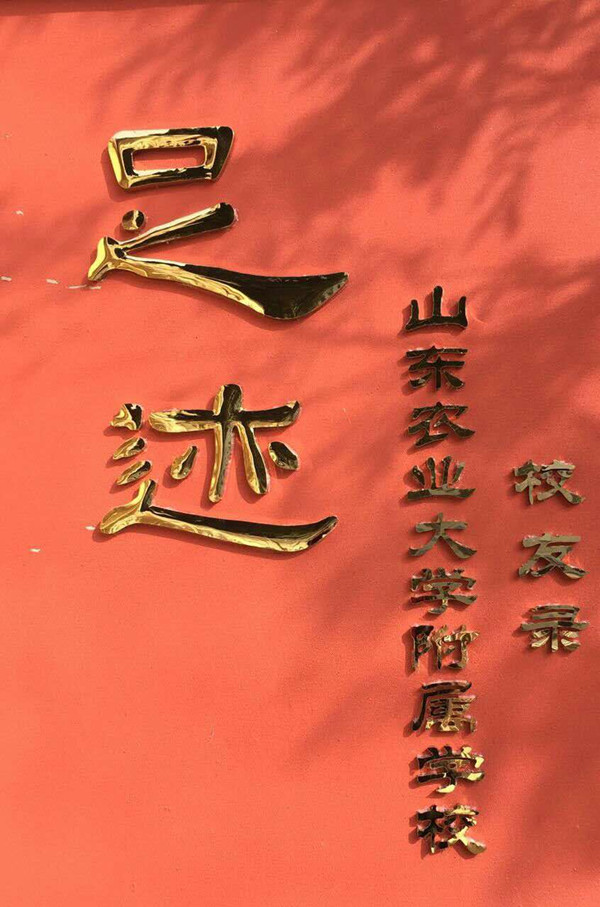 足迹
山东农业大学附属学校
校友录